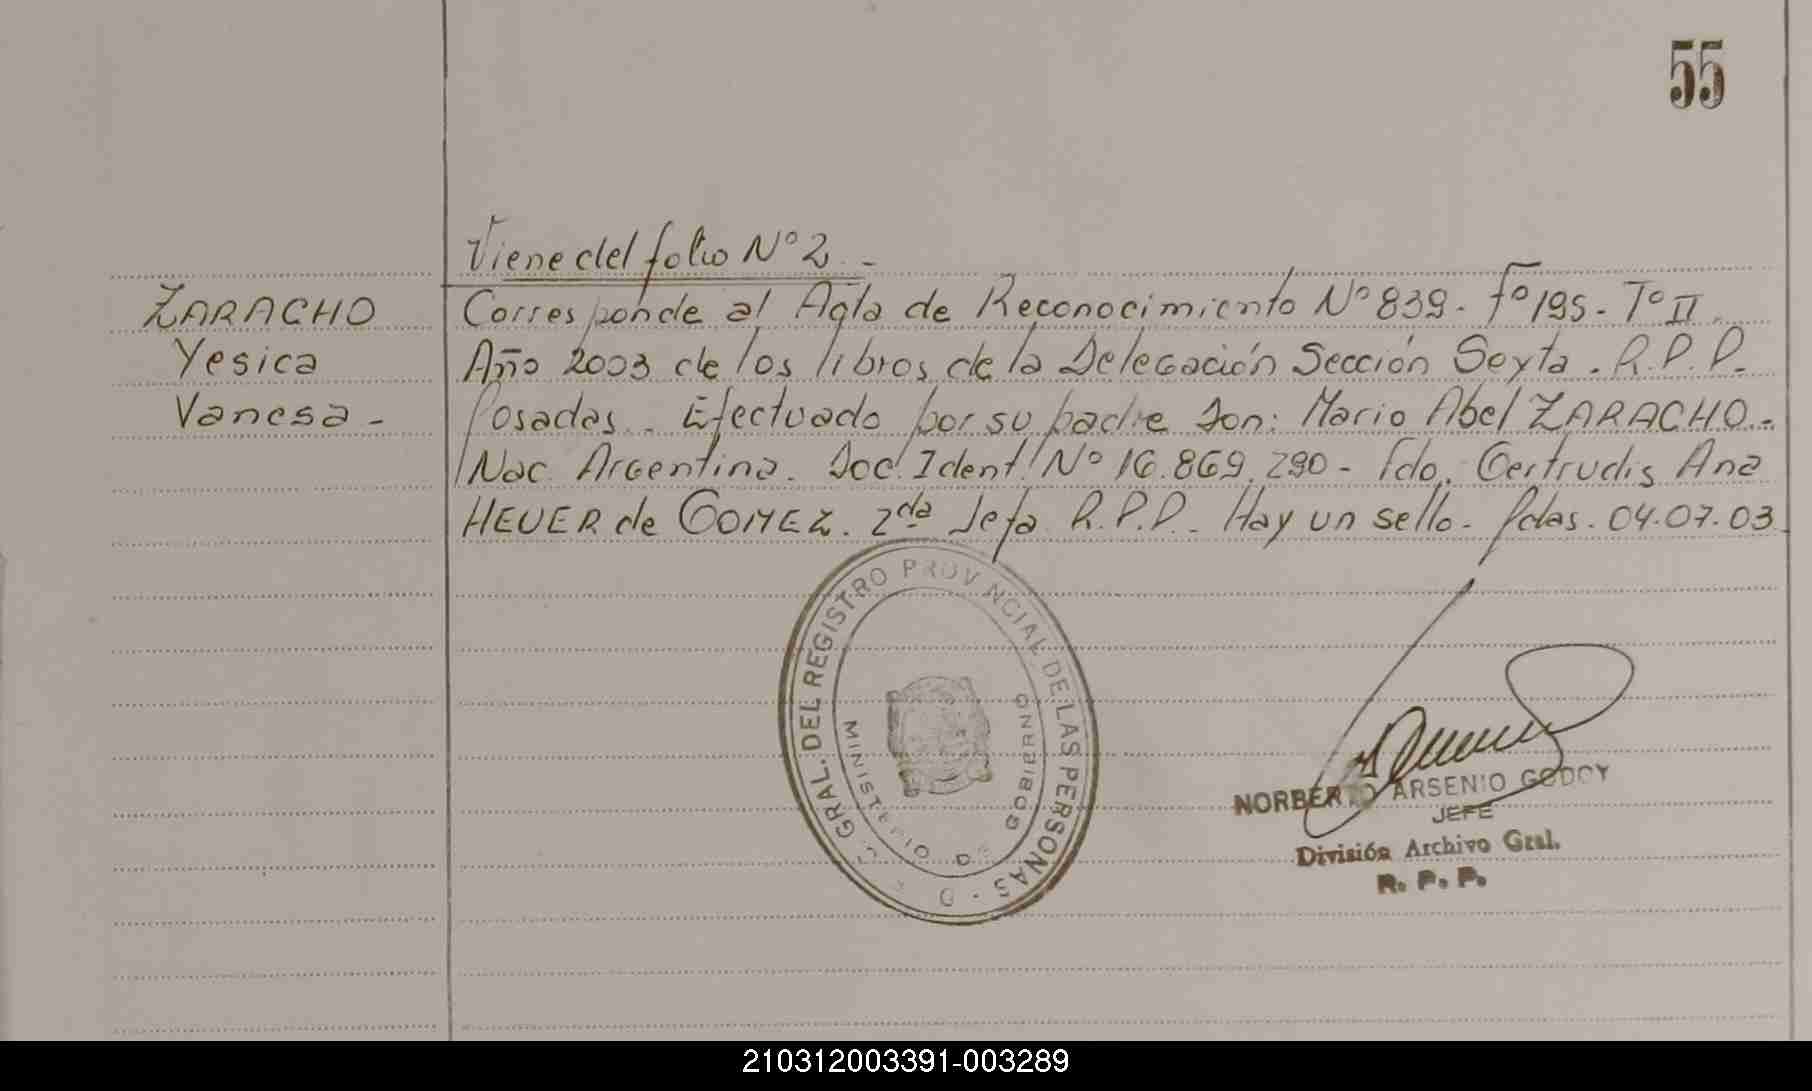 55
Viene del folio Nº 2.-
ZARACHO
Yesica
Vanesa-
Corresponde al Acta de Reconocimiento Nº 839- Fº 195- Tº II.
Año 2003 de los libros de la Delegación Sección Sexta. R.P.P.
Posadas.- Efectuado por su padre Don: Mario Abel ZARACHO.-
Nac. Argentina. Doc. Ident. Nº 16.869.290- Fdo. Gertrudis Ana
HEUER de GOMEZ. 2da Jefa R.P.P.- Hay un sello- Pdas. 04.07.03
GRAL. DEL REGISTRO PROVINCIAL DE LAS PERSONAS
MINISTERIO DE GOBIERNO
NORBERTO ARSENIO GODOY
JEFE
División Archivo Gral.
R. P. P.
210312003391-003289